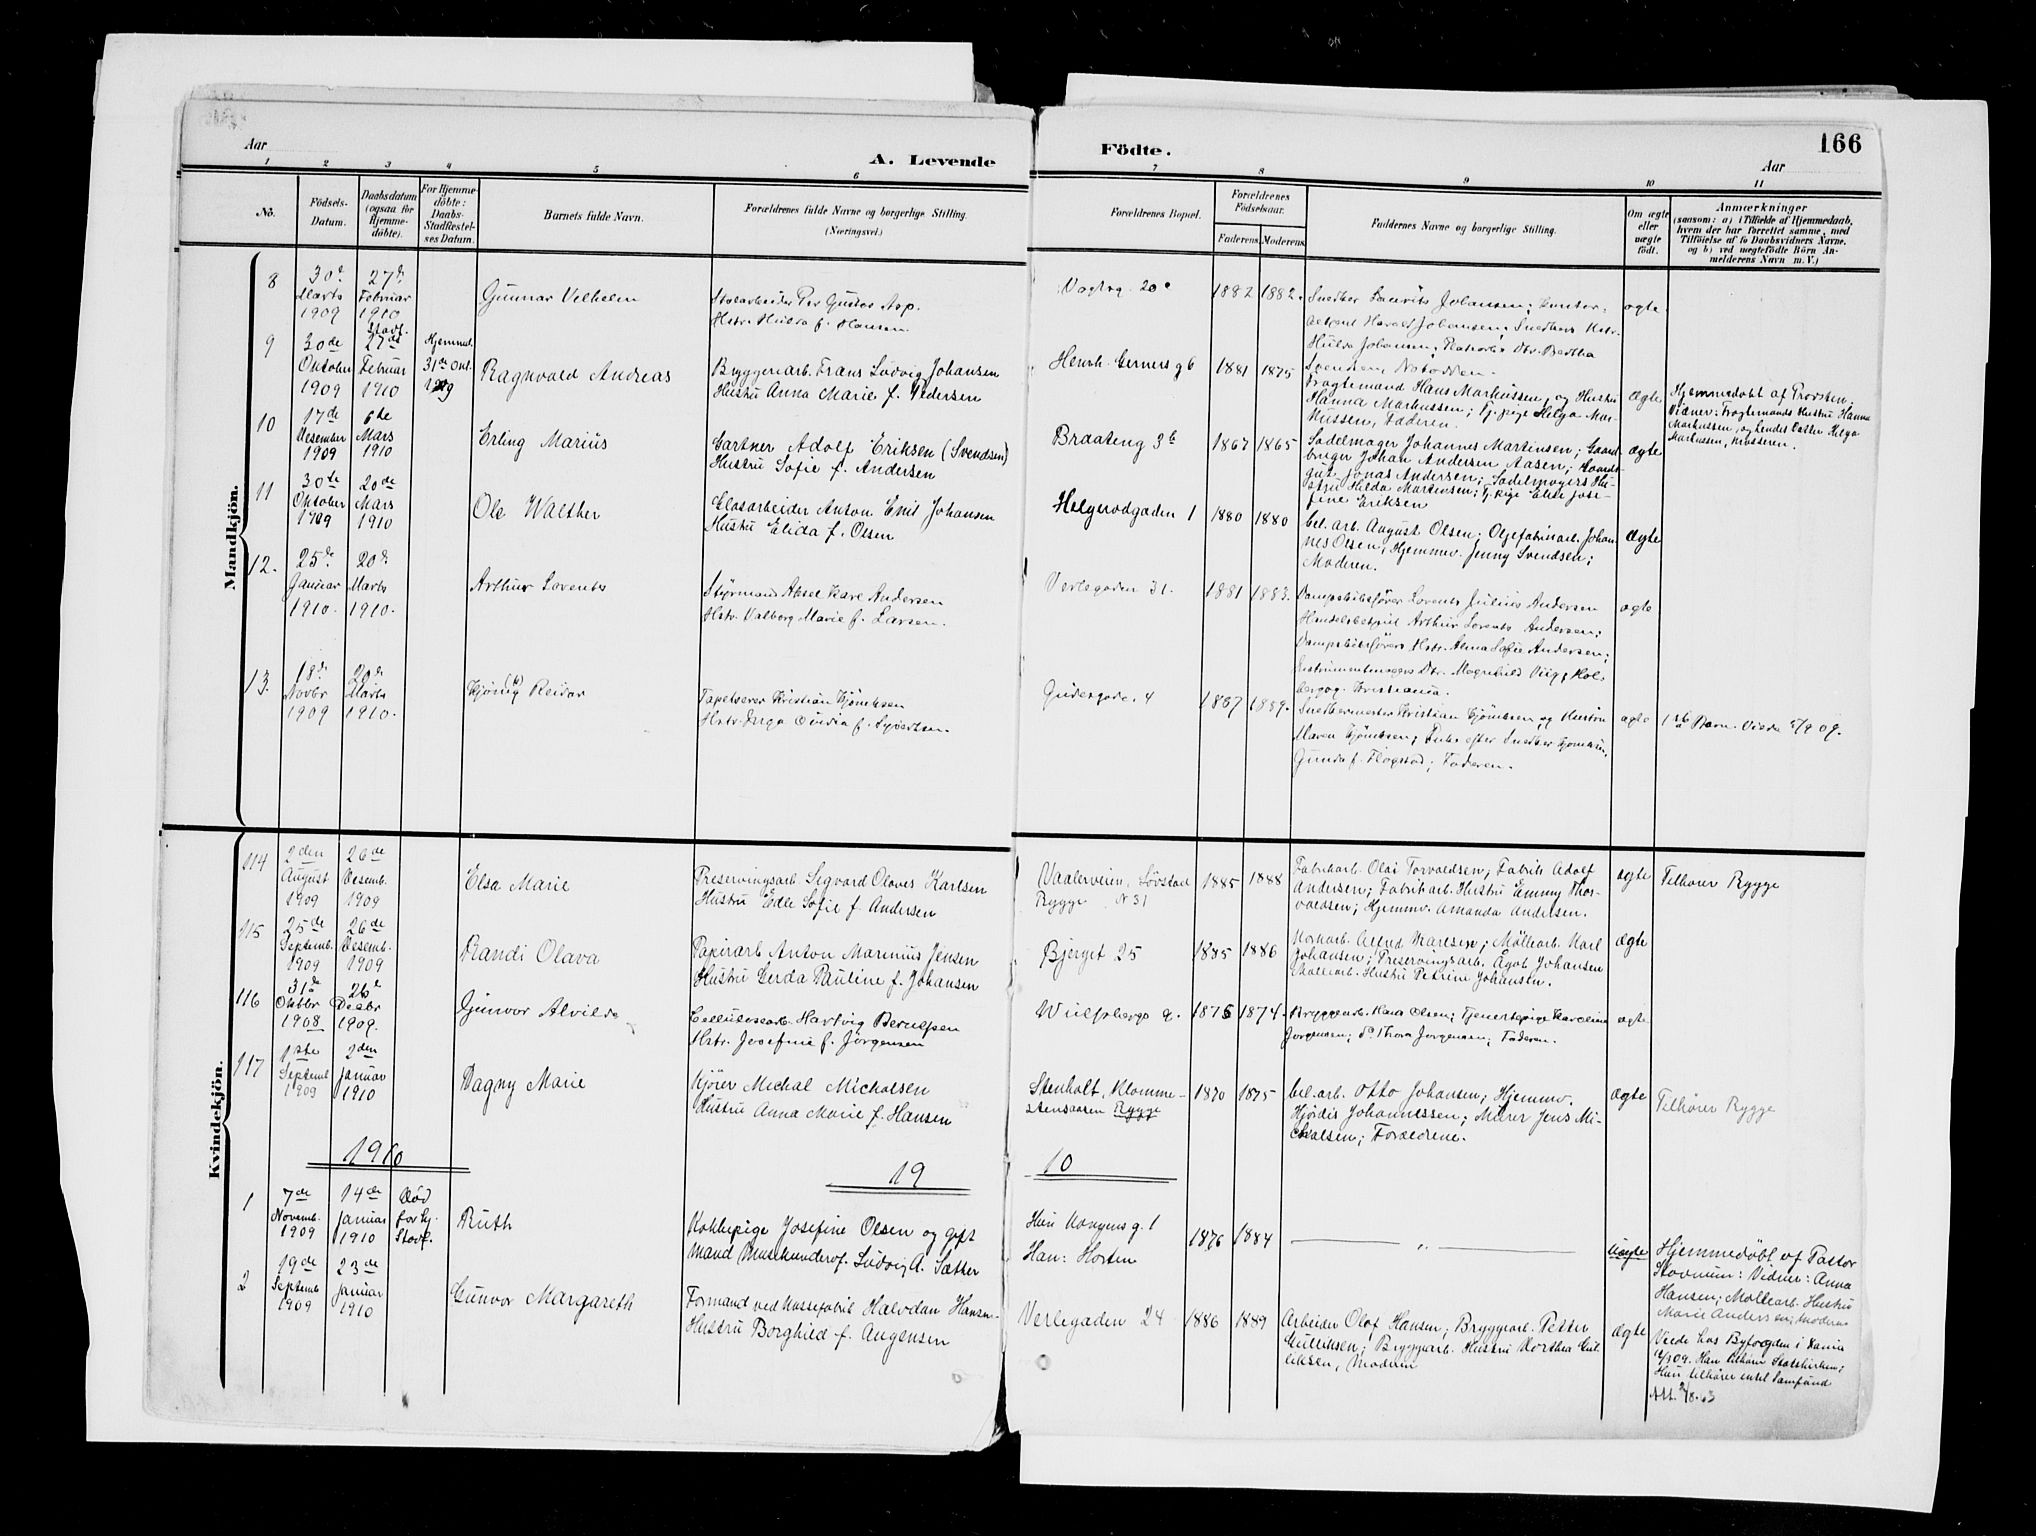 Aar
A. Levende
Födte.
Aar
166
1 2 3 4 5 6 7 8 9 10 11
No.
Födsels-Datum.
Daabsdatum (ogsaa for Hjemme-döbte).
For Hjemme-döbte: Daabs-Stadfæstel-ses Datum.
Barnets fulde Navn.
Forældrenes fulde Navne og borgerlige Stilling. (Næringsvei.)
Forældrenes Bopæl.
Forældrenes Födselsaar.
Faderens. Moderens.
Faddernes Navne og borgerlige Stilling.
Om ægte eller uægte födt.
Anmærkninger
(saasom: a) i Tilfælde af Hjemmedaab,
hvem der har forrettet samme, med
Tilföielse af to Daabsvidners Navne,
og b) ved uegtefödte Börn An-
melderens Navn m. V.)
Mandkjön.
8
30te Marts 1909
27de Februar 1910
Gunnar Vilhelm
Per Gustav Asp.
Hstr. Hulda f. Hansen
Vogtsg. 20
1882 1882.
Snedker Laurits Johansen; Kontor-
betjent Harald Johansen; Snedkers Hstr.
Hulda Johansen; Dtr. Bertha
Svendsen, Notodden.
ægte.
9
30de Oktober 1909
Stadf. 27de Februar 1910
Hjemmed. 31te Okt. 1909
Ragnvald Andreas
Bryggeriarb. Frans Ludvig Johansen
Hustru Anna Marie f. Pedersen
Henrh. Gerners g 6
1881 1875
Fragtemand Hans Markussen, og Hustru
Hanna Markussen; Tj. pige Helga Mar-
kussen, Faderen.
Ægte
Hjemmedöbt af Provsten.
Vidner: Fragtemands Hustru Hanna
Markussen, og hendes Datter Helga
Markussen, Mosseren.
10
17de Desember 1909
6te Mars 1910
Erling Marius
Gartner Adolf Eriksen (Svendsen)
Hustru Sofie f. Andersen
Braateng 3b
1867 1865
Sadelmager Johannes Martinsen; Gaard-
bruger Johan Andersen Aasen; Gaards-
gut Jonas Andersen; Sadelmagers Hu-
stru Hilda Martinsen; Tj. pige Elise Jose-
fine Eriksen
ægte
11
30te Oktober 1909
20de Mars 1910
Ole Walther
Glasarbeider Anton Emil Johansen
Hustru Elida f. Olsen
Helgerodgaden 1
1880 1880
Cel. arb. August Olsen; Oljefabrikarb. Johan-
nes Olsen, Hjemmv. Jenny Svendsen;
Moderen.
Ægte
12.
25de Januar 1910.
20de Marts 1910.
Arthur Lorents
Styrmand Aksel Kare Andersen
Hstr. Valborg Marie f. Larsen.
Verlegaden 31.
1881 1883.
Dampskibsförer Lorents Julius Andersen
Handelsbetjent Arthur Lorents Andersen;
Dampskibsförers Hstr. Alma Sofie Andersen;
Instrumentmagers Dtr. Magnhild Viig, Hol-
bergsg. Kristiania.
ægte
13.
18de Novbr 1909
20de Marts 1910.
Kjönig Reidar
Tapetserer Kristian Kjönigsen
Hstr. Inga Ovidia f. Syvertsen.
Gudesgade. 4
1887 1889.
Snedkermester Kristian Kjönigsen og Hustru
Maren Kjönigsen; Enke efter Snedker Kjönigsen,
Gunda f. Flogstad; Faderen.
ægte
1ste Barn. Viede 5/9 09.
Kvindekjön.
114
2den August 1909
26de Desemb. 1909
Elsa Marie
Preservingsarb. Sigvard Olaves Karlsen
Hustru Edle Sofie f. Andersen
Vaalerveien, Lövstad
Rygge N 31
1885 1888
Fabrikarb. Olai Torvaldsen; Fabrik Adolf
Andersen; Fabrikarb. Hustru Emmy Thor-
valdsen; Hjemmv. Amanda Andersen.
ægte
Tilhörer Rygge
115
25de Septemb. 1909
26de Desemb. 1909
Randi Olava
Papirarb Anton Marinius Jensen
Hustru Gerda Pauline f. Johansen
Bjerget 25
1885 1886
Karlsen; Möllearb. Karl
Johansen; Preservingsarb. Ågot Johansen
Möllearb. Hustru Petrine Johansen.
Ægte
116
31te Oktbr 1908
26de Decbr 1909.
Gunvor Alvilde
Cellulosearb. Hartvig Berntsen
Hstr. Josefine f. Jörgensen
Wulfsbergs g.
1876 1874.
Bryggeriarb. Hans Olsen; Tjenestepige Karoline
Jorgensen; do Thora Jorgensen; Faderen.
ægte
117
1ste Septemb 1909
2den Januar 1910
Dagny Marie
Kjörer Michal Michalsen
Hustru Anna Marie f. Hansen
Stenholt, Klomme-
stensaasen Rygge
1870 1875
Cel. arb. Otto Johansen; Hjemmv.
Hjördis Johannessen; Murer Jens Mi-
chalsen; Forældrene.
Ægte
Tilhörer Rygge
1910
19
10
1
7de Novemb. 1909
14de Januar 1910
Död för hj. Stadf.
Ruth
Kokkepige Josefine Olsen og gift
mand Musikunderof. Ludvig A. Sæther
Hun Kongens g. 1
Han: Horten
1876 1884
— „ —
Uægte
Hjemmedöbt af Pastor
Stavnum: Vidner: Anna
Hansen; Möllearb. Hustru
Marie Andersen; Moderen
2
19de Septemb 1909
23de Januar 1910
Gunvor Margareth
Formand ved Kassefabrik Halvdan Hansen
Hustru Borghild f. Augensen
Verlegaden 24
1886 1889
Arbeider Olaf Hansen; Bryggearb. Petter
Gulliksen; Bryggearb. Hustru Dorthea Gul-
liksen, Modern
Ægte
Viede hos Byfogden i
1/3 09. Han tilhörer Statskirken;
Hun tilhörer intet Samfund
Att. 2/8.63